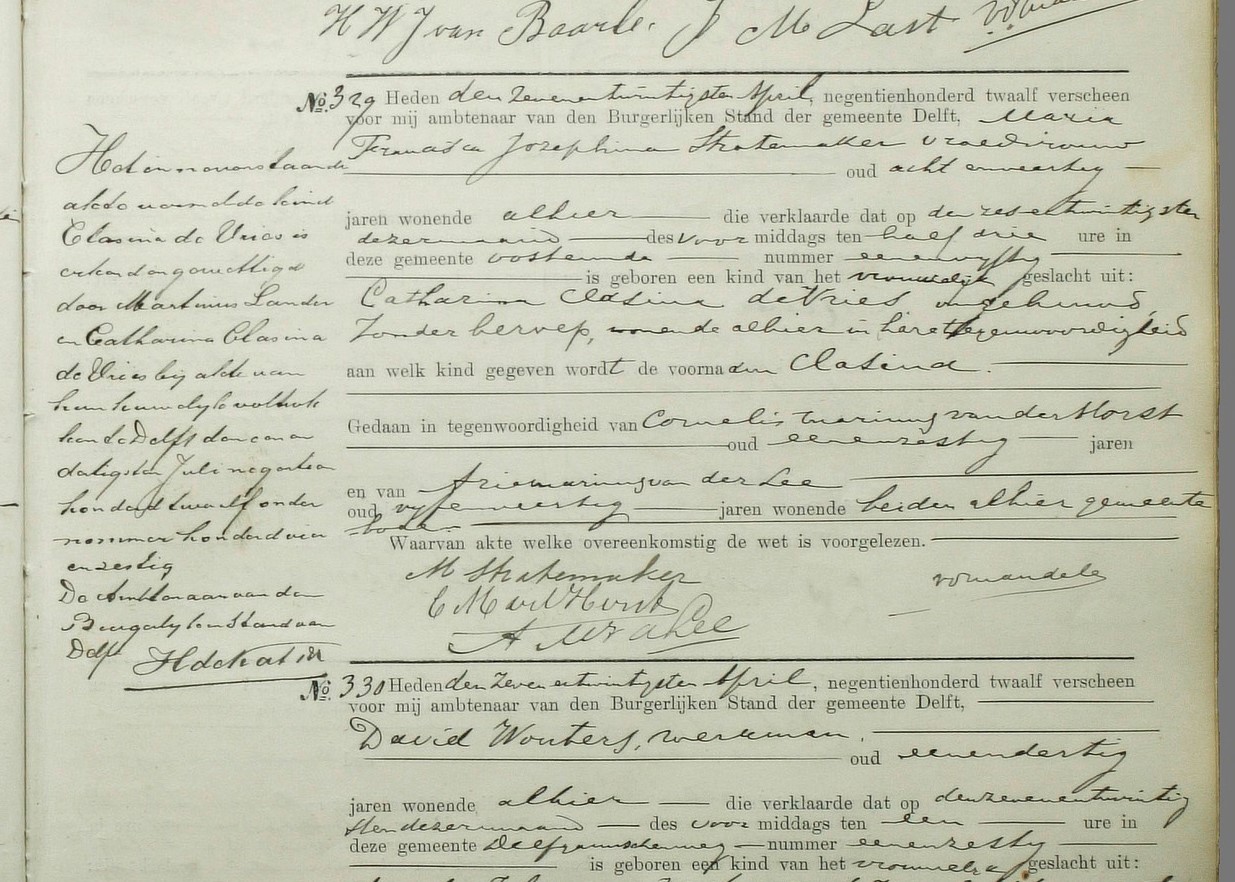 H W J van Baarle. J M Last
No. 329 Heden den zevenentwintigsten April, negentienhonderd twaalf verscheen
voor mij ambtenaar van den Burgerlijken Stand der gemeente Delft, Maria
Francisca Josephina Stratemaker vroedvrouw
oud acht enveertig
jaren wonende alhier die verklaarde dat op den zesentwintigsten
dezer maand des voor middags ten half drie ure in
deze gemeente oosteinde nummer eenenvyftig
is geboren een kind van het vrouwelijk geslacht uit:
Catharina Clasina de Vries ongehuwd,
zonder beroep, wonende alhier in hare tegenwoordigheid
aan welk kind gegeven wordt de voornaam Clasina.
Gedaan in tegenwoordigheid van Cornelis Marinus van der Horst
oud eenenzestig jaren
en van Arie Marinus van der Lee
oud vyfenveertig jaren wonende beiden alhier gemeente
bode
Waarvan akte welke overeenkomstig de wet is voorgelezen.
M Stratemaker
C M vd Horst
A M v d Lee
Het in nevenstaande
akte vermelde kind
Clasina de Vries is
erkend en gewettigd
door Martinus Lander
en Catharina Clasina
de Vries bij akte van
hun huwelyk voltrok
ken te Delft den een en
dertigsten Juli negentien
honderd twaalf onder
nommer honderd vier
en zestig
De Ambtenaar van den
Burgerlyken Stand van
Delft
No. 330 Heden den zevenentwintigsten April, negentienhonderd twaalf verscheen
voor mij ambtenaar van den Burgerlijken Stand der gemeente Delft,
David Wouters, werkman,
oud eenendertig
jaren wonende alhier die verklaarde dat op den zevenentwintig
sten dezer maand des voor middags ten een ure in
deze gemeente Delfgaauwscheweg nummer eenenzestig
is geboren een kind van het vrouwelijk geslacht uit: